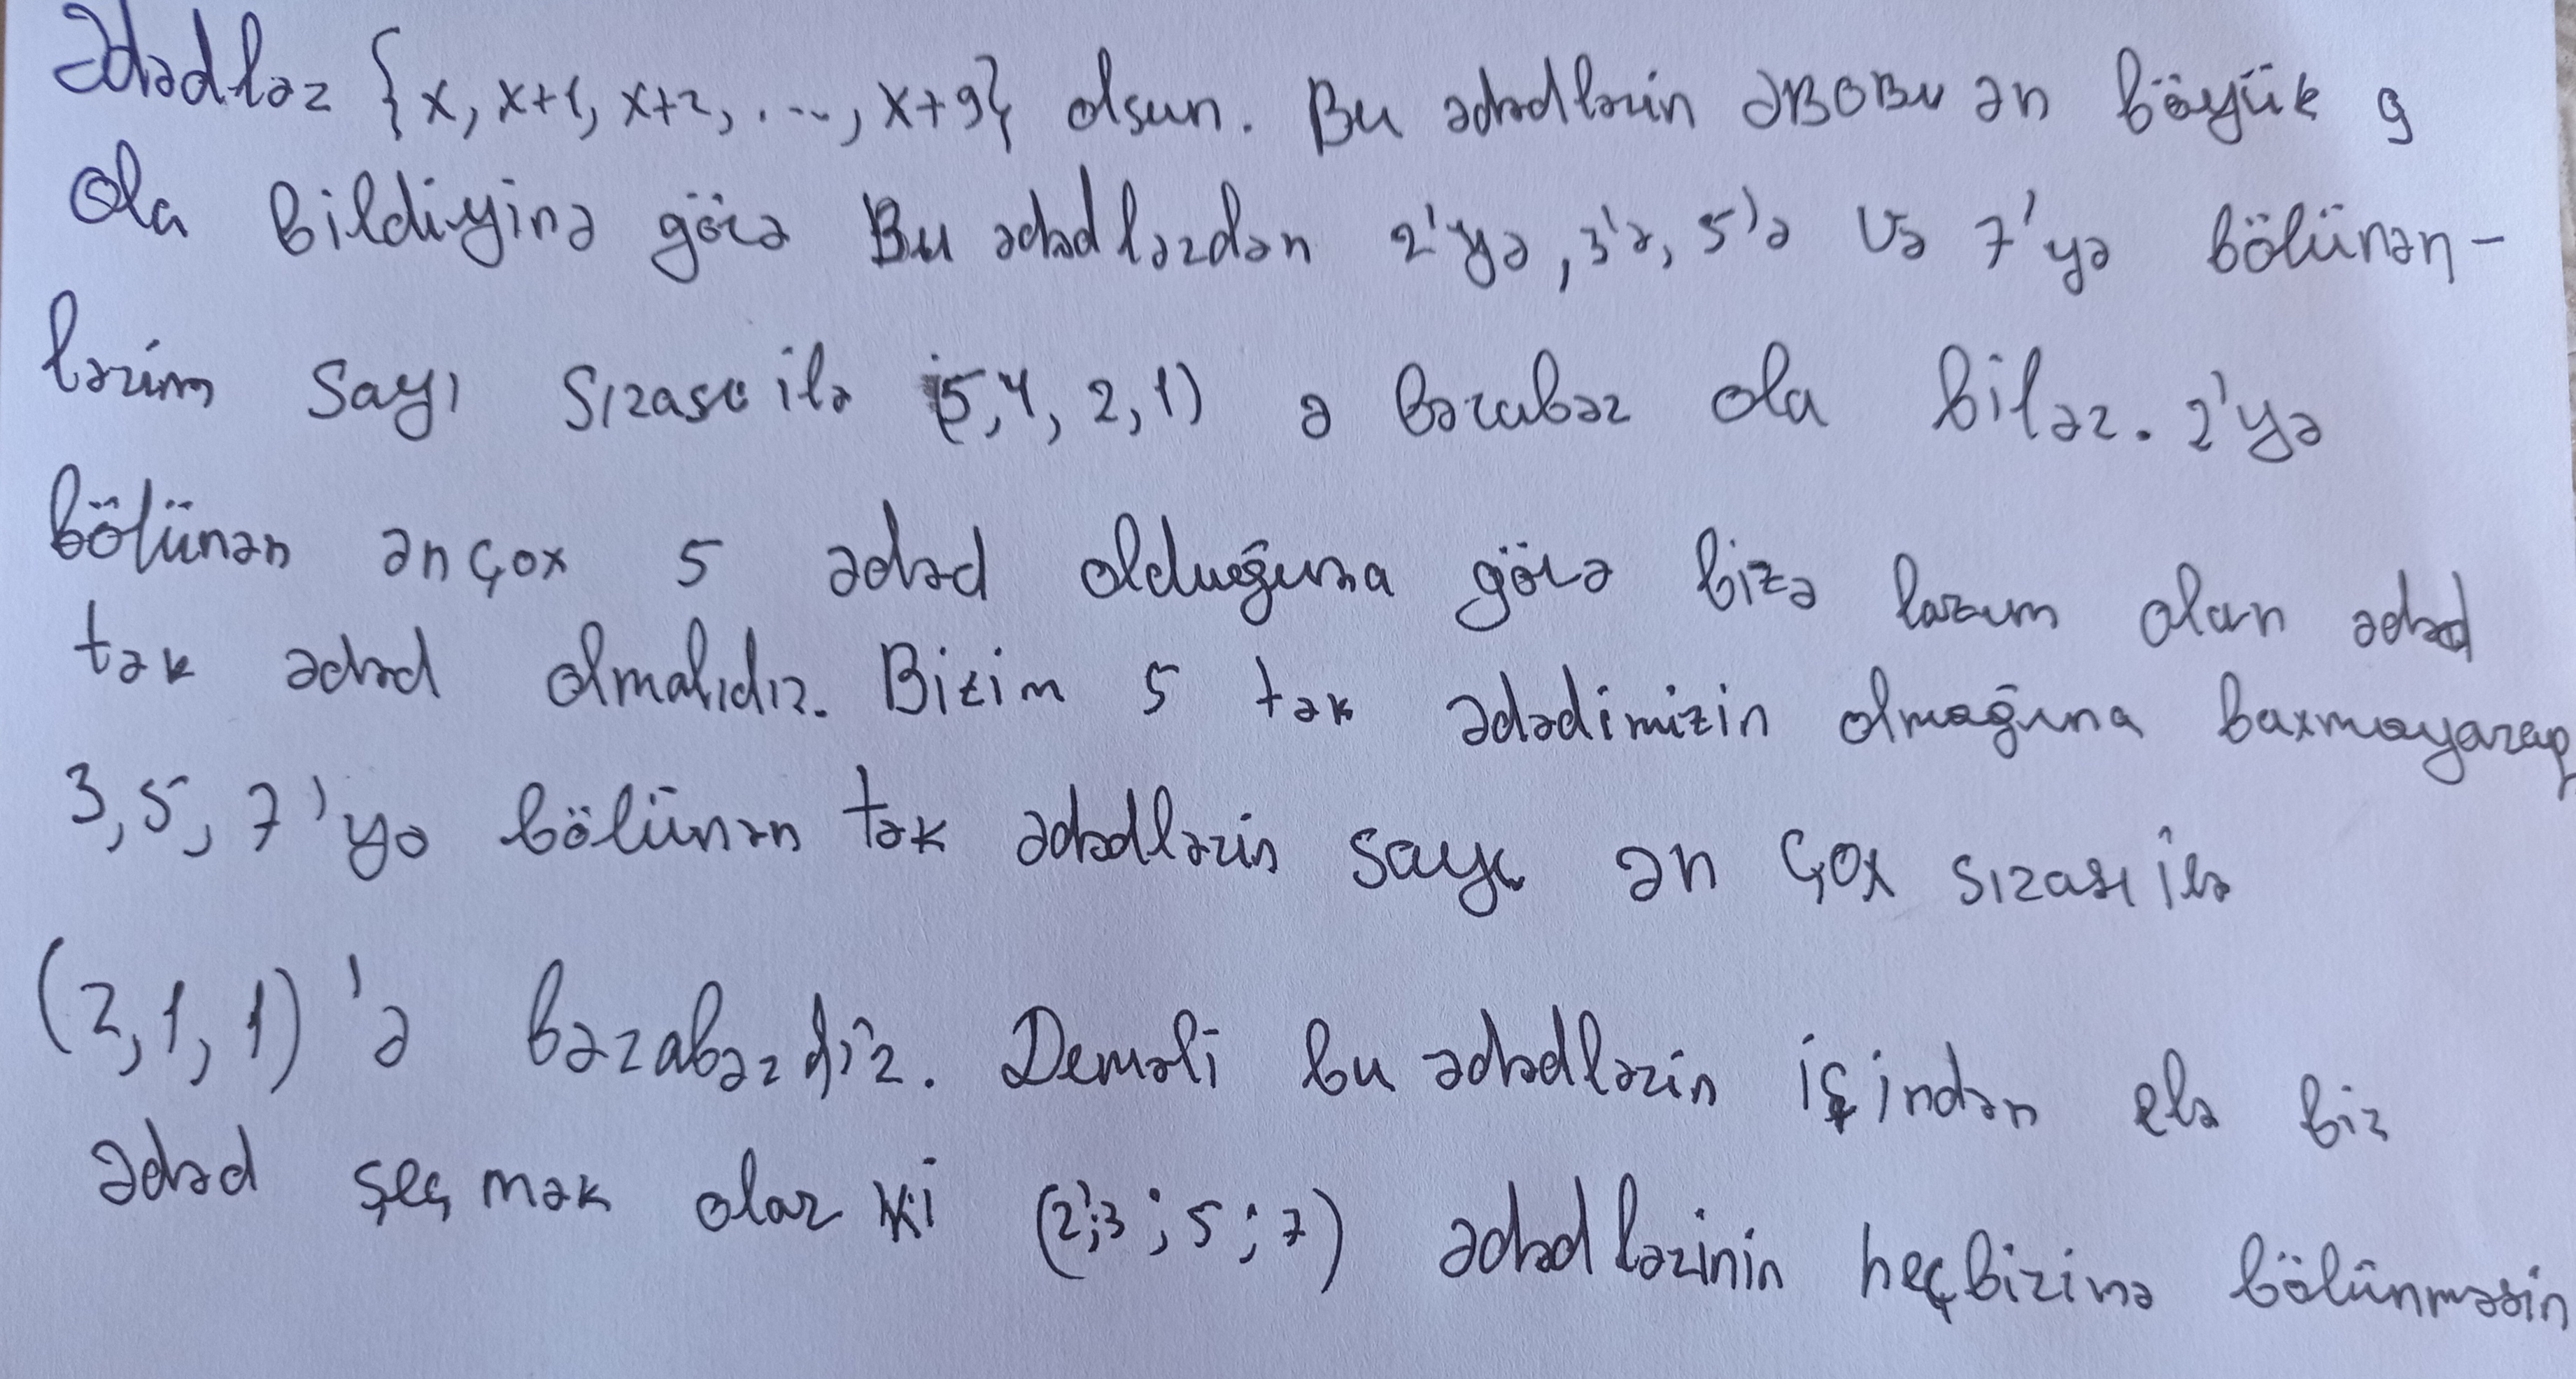 Ədədlər {x, x+1, x+2, ..., x+9} olsun. Bu ədədlərin ƏBOBu ən böyük 9
ola bildiyinə görə Bu ədədlərdən 2'yə, 3'ə, 5'ə və 7'yə bölünən-
lərin sayı sırası ilə (5,4,2,1) ə bərabər ola bilər. 2'yə
bölünən ən çox 5 ədəd olduğuna görə bizə lazım olan ədəd
tək ədəd olmalıdır. Bizim 5 tək ədədimizin olmağına baxmayaraq
3,5,7'yə bölünən tək ədədlərin sayı ən çox sırası ilə
(2,1,1)'ə bərabərdir. Deməli bu ədədlərin içindən elə bir
ədəd seçmək olar ki (2;3;5;7) ədədlərinin heçbirinə bölünməsin